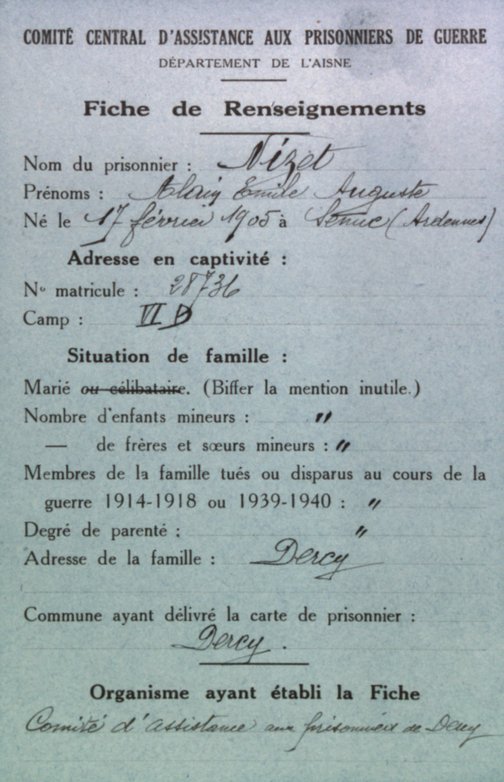 COMITÉ CENTRAL D'ASSISTANCE AUX PRISONNIERS DE GUERRE
DÉPARTEMENT DE L'AISNE
Fiche de Renseignements
Nom du prisonnier : Nizet
Prénoms : Alain Emile Auguste
Né le 17 février 1905 à Senuc (Ardennes)
Adresse en captivité :
No matricule : 28736
Camp : VI D
Situation de famille :
Marié ou célibataire. (Biffer la mention inutile.)
Nombre d'enfants mineurs : "
— de frères et sœurs mineurs : "
Membres de la famille tués ou disparus au cours de la
guerre 1914-1918 ou 1939-1940 : "
Degré de parenté : "
Adresse de la famille : Dercy
Commune ayant délivré la carte de prisonnier :
Dercy.
Organisme ayant établi la Fiche
Comité d'assistance aux prisonniers de Dercy